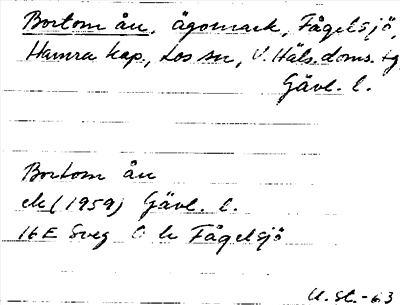 Bortom ån, ägomark, Fågelsjö,
Hamra kap., Los sn, V. Häls. doms. tg,
Gävl. l.
Bortom ån
ek (1959) Gävl. l.
16E Sveg 0 h Fågelsjö
U. St. -63